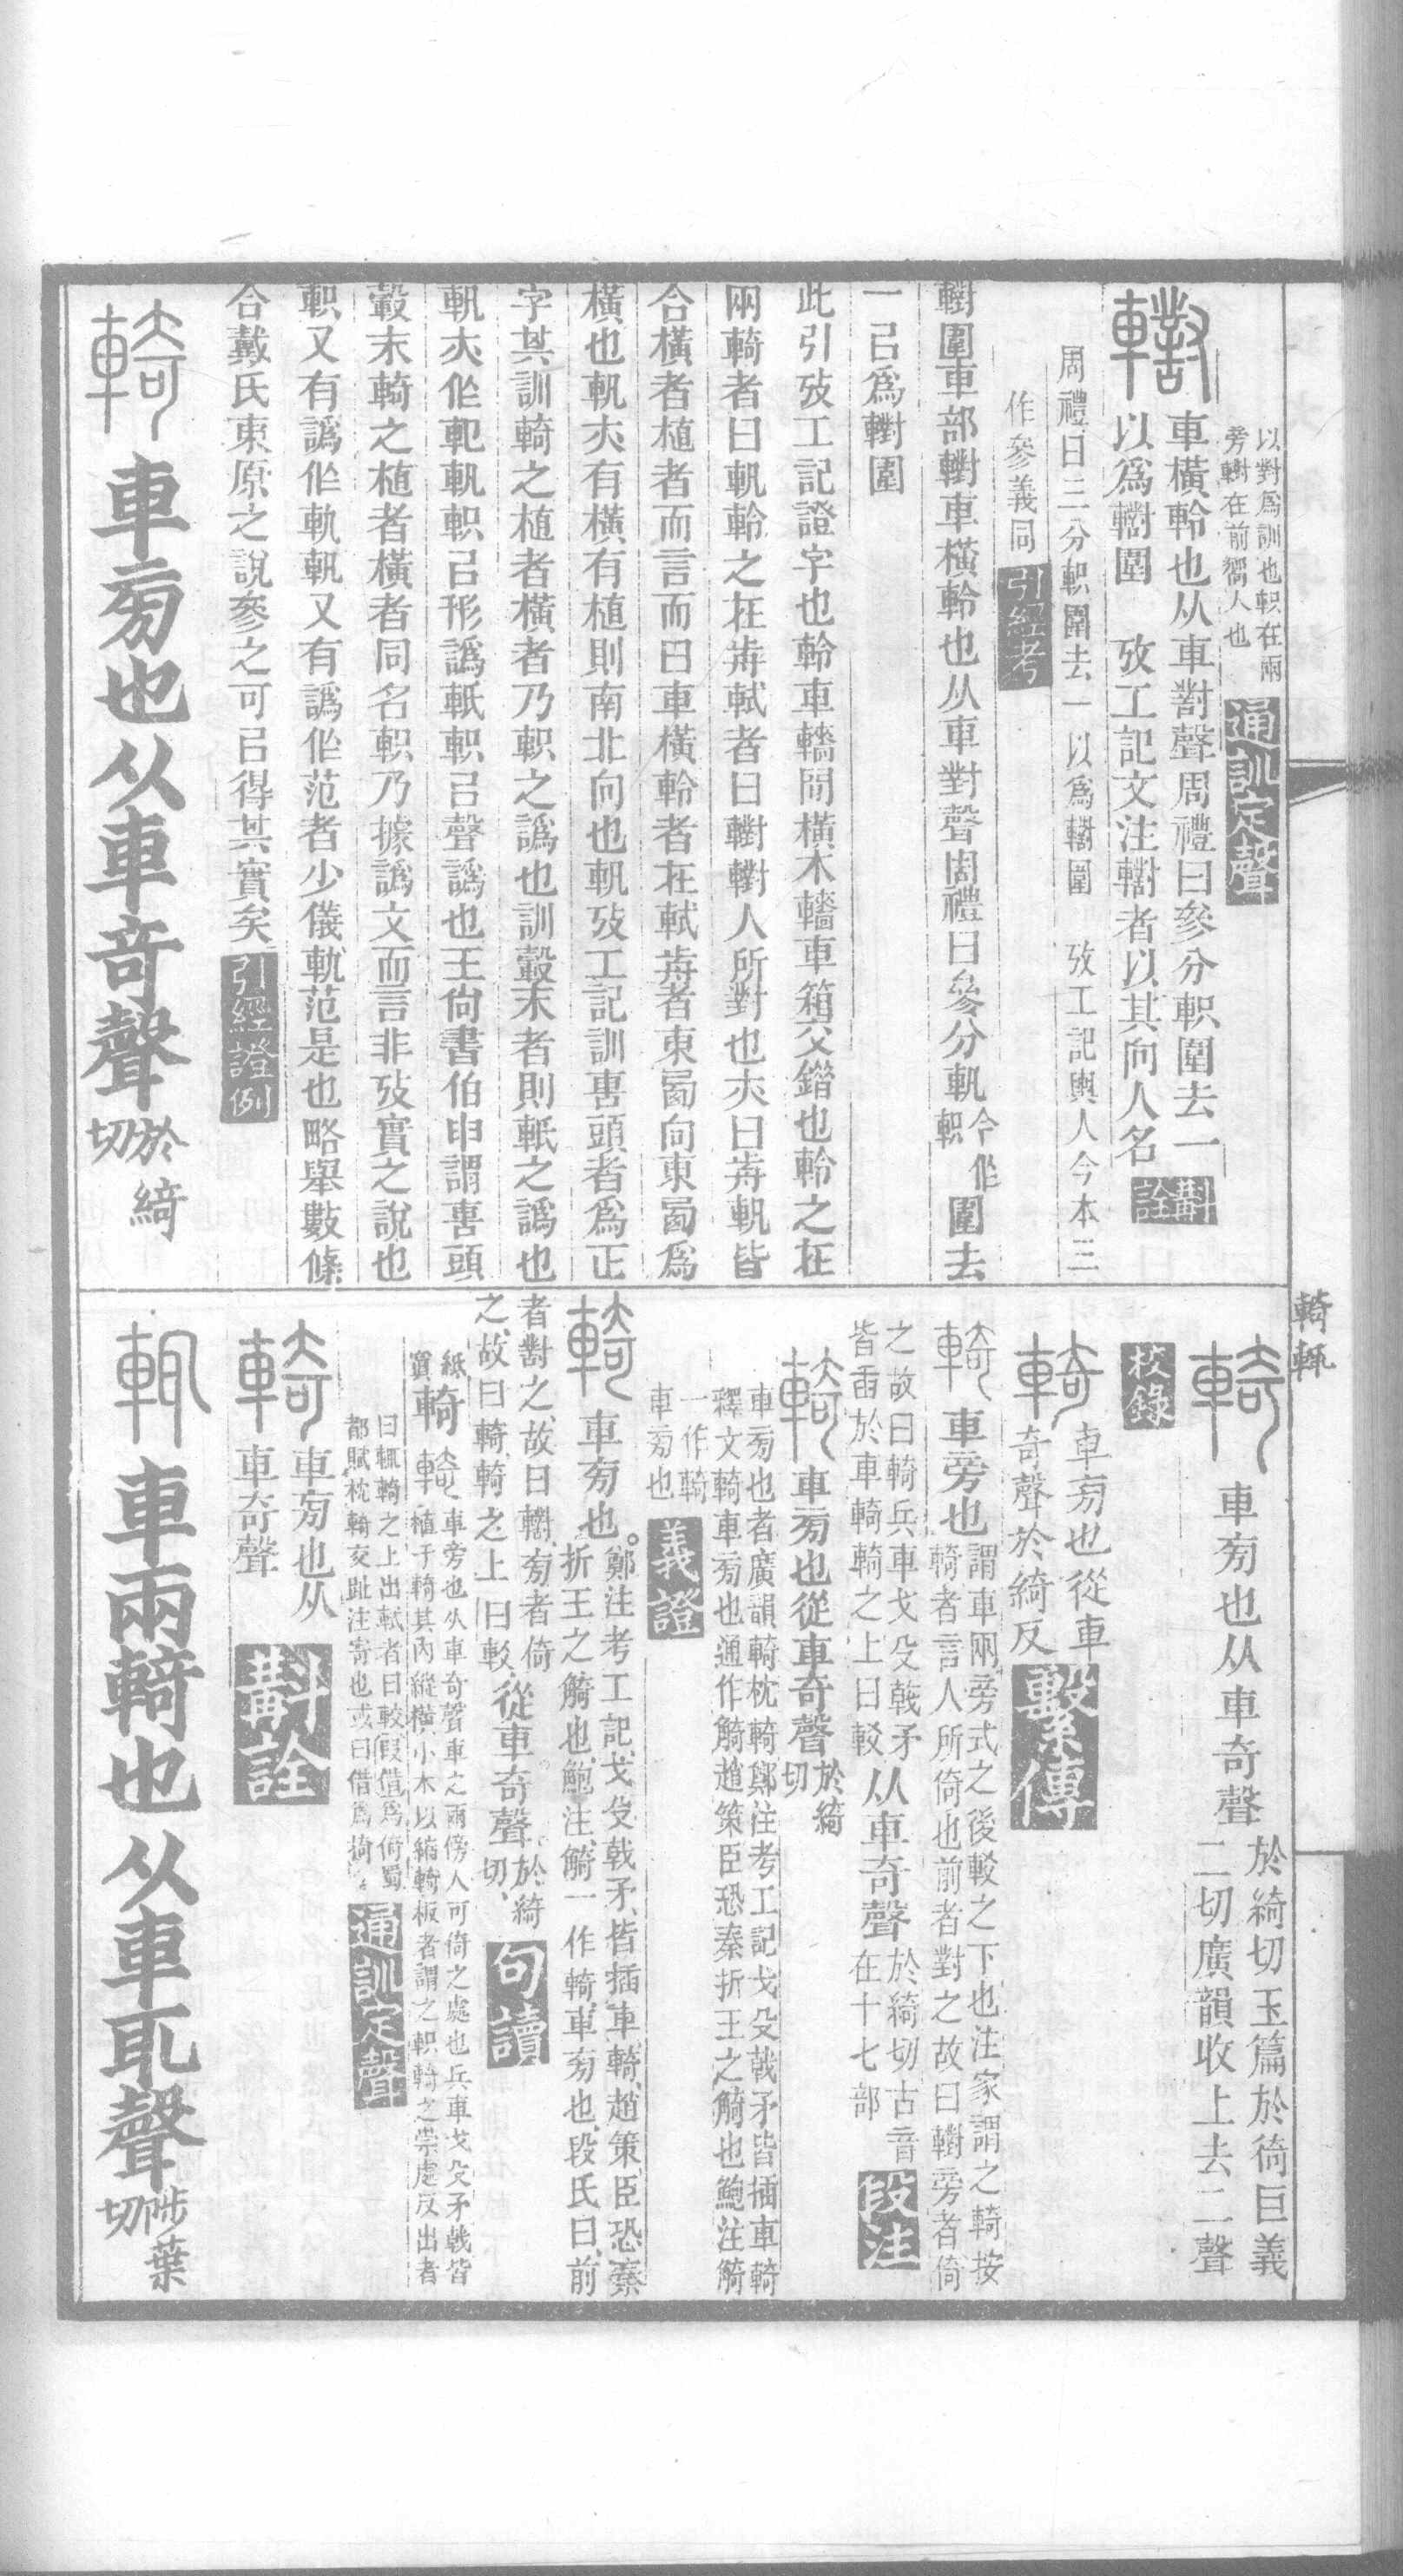 以對爲訓也軹在兩
旁轛在前嚮人也
通訓定聲
轛
車橫軨也从車對聲周禮曰參分軹圍去一
以爲轛圍 攷工記文注轛者以其向人名
斠詮
周禮曰三分軹圍去一以爲轛圍 攷工記輿人今本三
作參義同
引經考
轛圍車部轛車橫軨也从車對聲周禮曰參分軓今作軹圍去
一㠯爲轛圍
此引攷工記證字也軨車轖閒橫木轖車箱交䥘也軨之在
兩輢者曰軓軨之在歬軾者曰轛轛人所對也夶曰歬軓皆
合橫者植者而言而曰車橫軨者在軾歬者東圅向東圅爲
橫也軓夶有橫有植則南北向也軓攷工記訓軎頭者爲正
字其訓輢之植者橫者乃軹之譌也訓轂末者則軝之譌也
軓夶㑅軛軓軹㠯形譌軝軹㠯聲譌也王尙書伯申謂軎頭
轂末輢之植者橫者同名軹乃據譌文而言非攷實之說也
軹又有譌㑅軌軓又有譌㑅范者少儀軌范是也略舉數條
合戴氏東原之說參之可㠯得其實矣
引經證例
輢
車㫄也从車奇聲於綺切
輢輒
輢
車㫄也从車奇聲於綺切玉篇於徛巨義
二切廣韻收上去二聲
校錄
輢
車㫄也從車
奇聲於綺反
繫傳
輢
車旁也謂車兩旁式之後較之下也注家謂之輢按
輢者言人所倚也前者對之故曰轛旁者倚
之故曰輢兵車戈殳戟矛
皆臿於車輢輢之上曰較
从車奇聲於綺切古音
在十七部
段注
輢
車㫄也從車奇聲於綺切
車㫄也者廣韻輢枕輢鄭注考工記戈殳戟矛皆插車輢
釋文輢車㫄也通作觭趙策臣恐秦折王之觭也鮑注觭
一作輢
車㫄也
義證
輢
車㫄也。鄭注考工記、戈殳戟矛、皆插車輢、趙策、臣恐秦
折王之觭也、鮑注、觭一作輢、車㫄也、段氏曰、前
者對之、故曰轛、㫄者倚
之、故曰輢、輢之上曰較、
從車奇聲、於綺切、
句讀
紙
寘
輢
輢車旁也从車奇聲車之兩傍人可倚之處也兵車戈殳矛戟皆
植于輢其內縱橫小木以縮輢板者謂之軹輢之崇處反出者
曰輒輢之上出軾者曰較假借爲倚蜀
都賦枕輢交趾注寄也或曰借爲掎。
通訓定聲
輢
車㫄也从
車奇聲
斠詮
輒
車兩輢也从車耴聲陟葉切